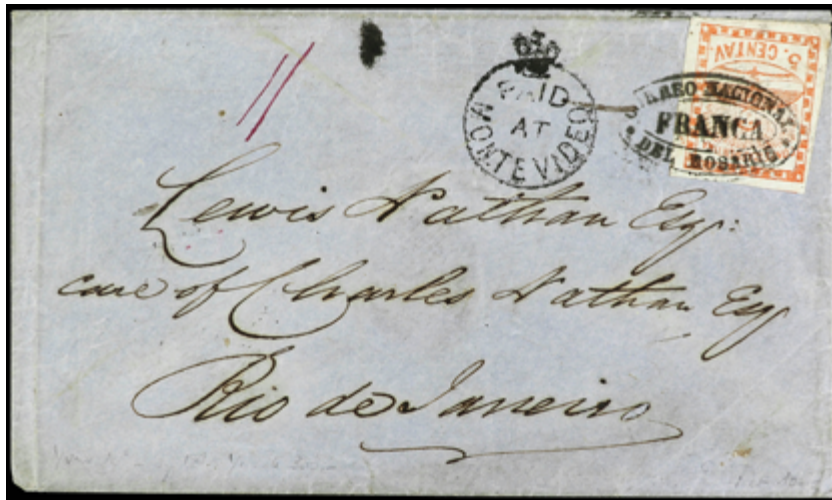 5. CENTAV
PAID
AT
MONTEVIDEO
CORREO NACIONAL
FRANCA
DEL ROSARIO
Lewis Nathan Esq:
care of Charles Nathan Esq
Rio de Janeiro